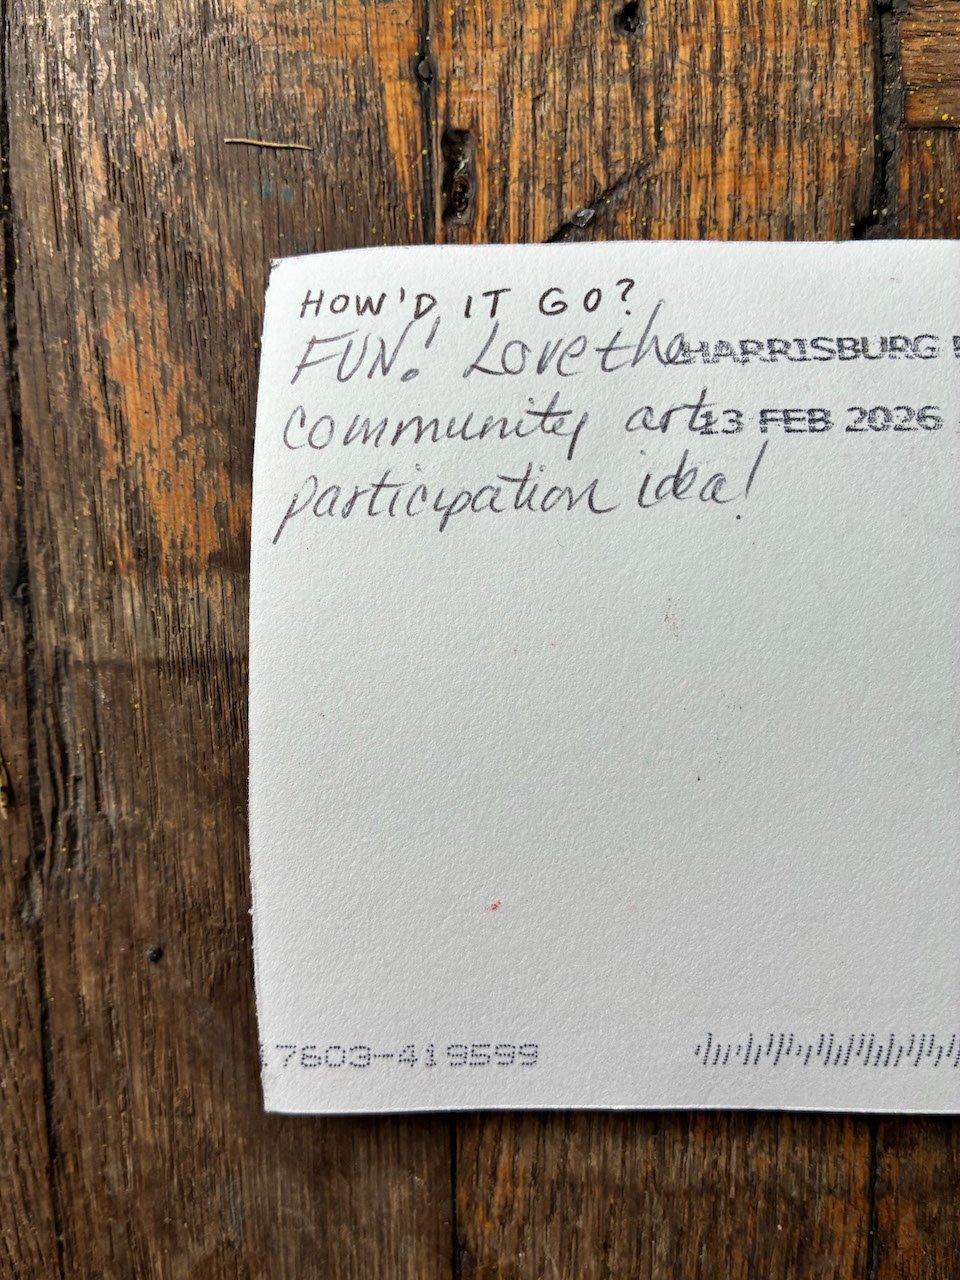 HOW'D IT GO?
FUN! Love the
HARRISBURG
community art
13 FEB 2026
participation idea!
7603-419599